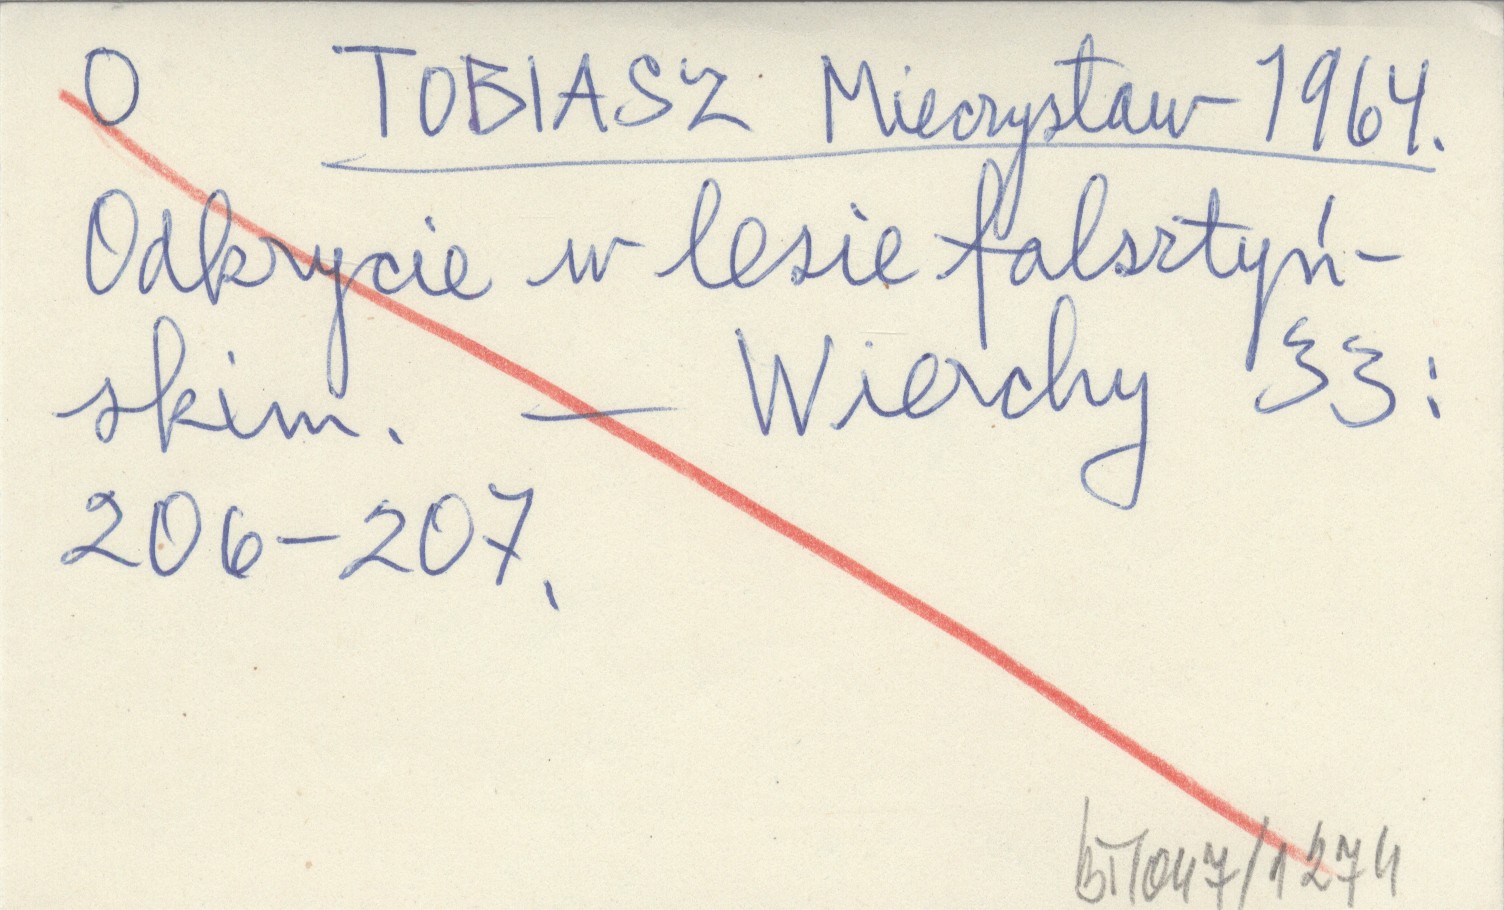 O TOBIASZ Mieczysław 1964.
Odkrycie w lesie falsztyń-
skim. — Wierchy 33:
206-207.